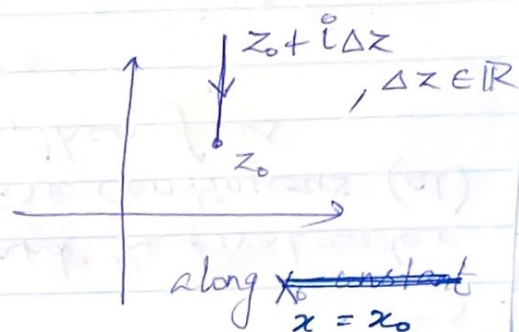 z₀ + iΔz
, Δz ∈ ℝ
z₀
along x₀ constant
x = x₀